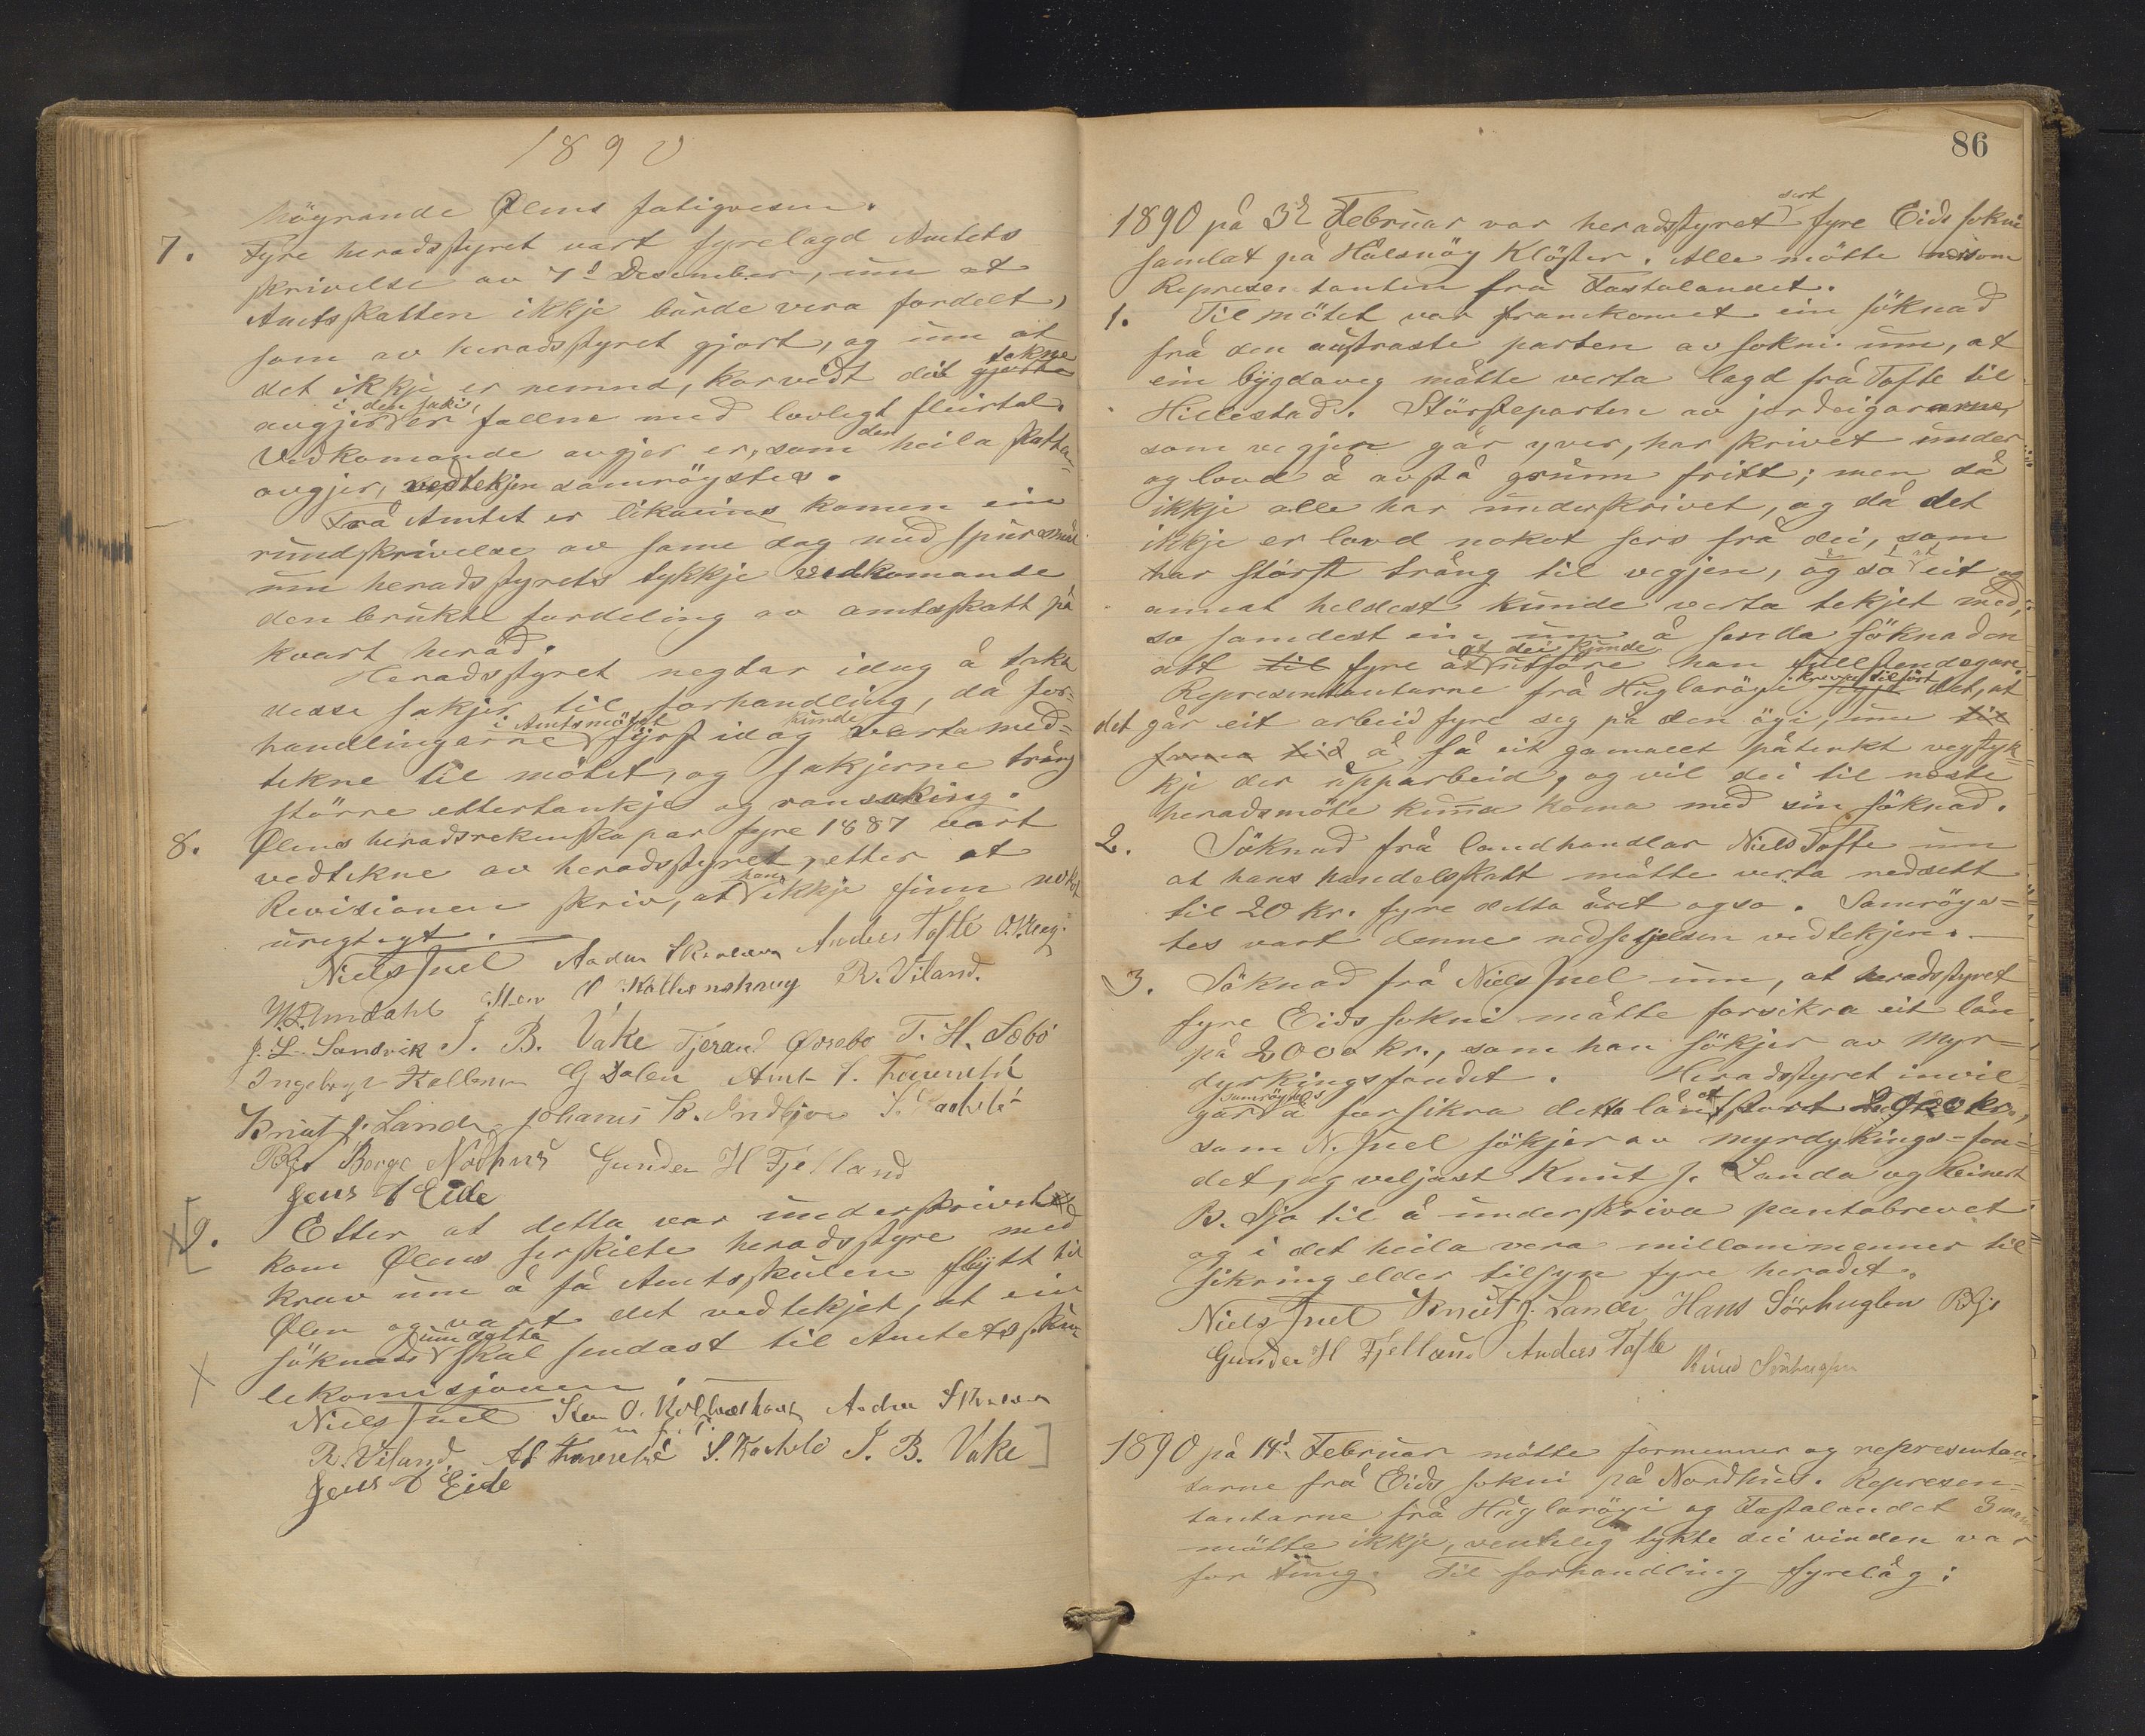 1890
högrande Ølens fatigvesen.
7. Fyre heradsstyret vart fyrelagd Amtets
skrivelse av 7d Desember, um at
Amtsskatten ikkje burde vera fordelt,
som av heradsstyret gjort, og um at
det ikkje er nemnd, korvidt dei gjorte tekne
avgjer i den saki er fallne med lovlegt fleirtal.
Vedkomande avgjer er, som den heila skatta-
avgjer, vedtekjen samröystes.
Frå Amtet er likaeins komen ein
rundskrivelse av same dag med spursmål
um heradsstyrets tykkje vedkomande
den brukte fordeling av amtsskatt på
kvart herad.
Heradsstyret negtar idag å taka
desse sakjer til forhandling, då for-
handlingarne i Amtsmötet fyrst idag kunde verta med-
tekne til mötet, og sakjerne trång
större ettertankje og ransaking.
8. Ølens heradsrekenskapar fyre 1887 vart
vedtekne av heradsstyret, etter at
Revisionen skriv, at han ikkje finn nokot
urigtigt.
Niels Juel Anders Tofte
W. L. Undahl R. Viland.
J. L. Sandvik J. B. Vake Tjerand Øvrebø T. H. Sæbö
G Dalen
Knut J. Landa Johanes
Børge Nordhus Gunder H Fjelland
Jens Eide
9. Etter at detta var underskrivet
kom Ølens serskilte heradsstyre med
krav um å få Amtsskulen flytt til
Ølen og vart det vedtekjet, at ein
söknad um detta skal sendast til Amtets sku-
lekomisjonen.
Niels Juel
R. Viland J. B. Vake
Jens Eide
86
1890 på 3d Februar var heradstyret sert fyre Eids sokni
samlat på Halsnöy Klöster. Alle mötte
Representanten frå Fastalandet.
1. Til mötet var framkomet ein söknad
frå den austraste parten av sokni um, at
ein bygdaveg måtte verta lagd frå Tofte til
Hillestad. Störsteparten av jordeigararne,
som vegjen går yver, har skrivet under
og lovd å avstå grunn fritt; men då
ikkje alle har underskrivet, og då det
ikkje er lovd nokot sers frå dei, som
har störst trång til vegjen, og så at eit og
annat heldest kunde verta tekjet med,
so samdest ein um å senda söknaden
att til fyre at dei kunde utföre han fullstendegare.
Representantarne frå Huglaröyi krevde tilfört det, at
det går eit arbeid fyre seg på den öyi, um til
sama tid å få eit gamallt påtenkt vegstyk-
kje der upparbeid, og vil dei til næste
heradsmöte kunna koma med sin söknad.
2. Söknad frå landhandlar Niels Tofte um
at hans handelsskatt måtte verta nedsett
til 20 kr. fyre detta året ogso. Samröys-
tes vart denne nedsetjelsen vedtekjen.
3. Söknad frå Niels Juel um, at heradsstyret
fyre Eids sokni måtte forsikra eit lån
på 2000 kr., som han sökjer av Myr-
dyrkingsfondet. Heradsstyret invil-
gar samröystes å forsikra detta lån stort 2000 kr.,
som N. Juel sökjer av myrdykings-fon-
det, og veljast Knut J. Landa og Reinert
B. Sjo til å underskriva pantabrevet
og i det heila vera millommenner til
sikring elder tilsyn fyre heradet.
Niels Juel Knut J. Landa Hans Sörhuglen
Gunder H Fjelland Anders Tofte
Knud Sörhuglen
1890 på 14d Februar mötte formenner og representan-
tarne frå Eids sokni på Nordhus. Represen-
tantarne frå Huglaröyi og Fastalandet 3 mann
mötte ikkje, venteleg tykte dei vinden var
for tung. Til forhandling fyrelåg: